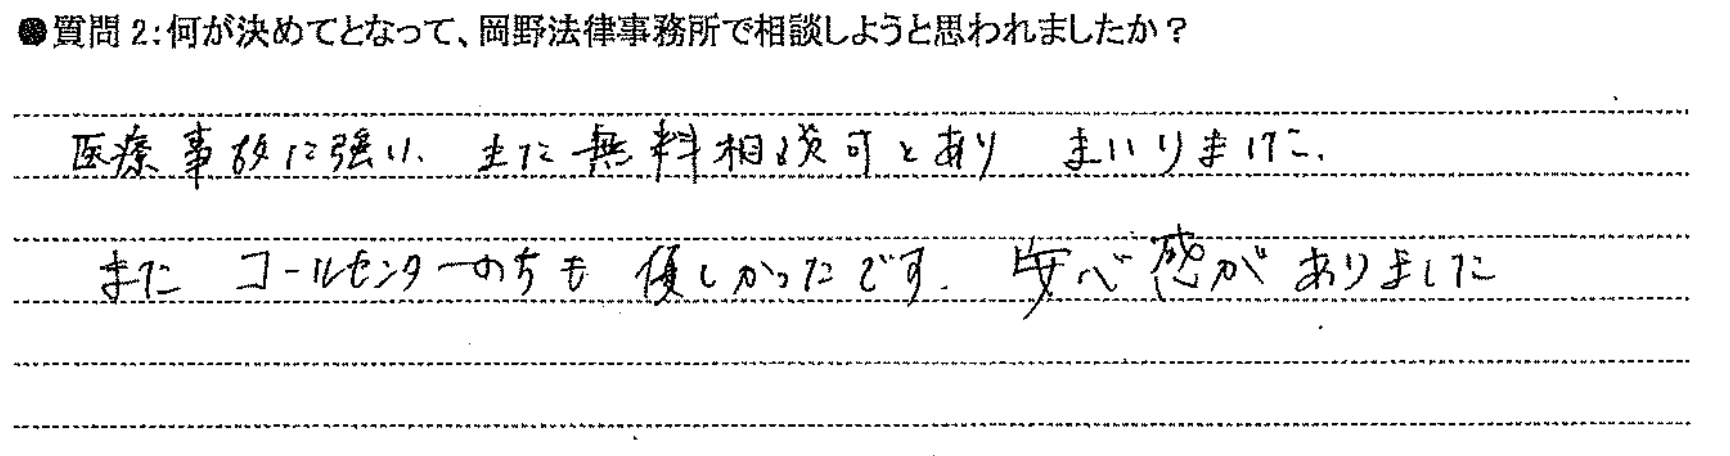 ●質問2:何が決めてとなって、岡野法律事務所で相談しようと思われましたか?
医療事故に強い、また無料相談可とあり まいりました。
また コールセンターの方も 優しかったです。安心感がありました